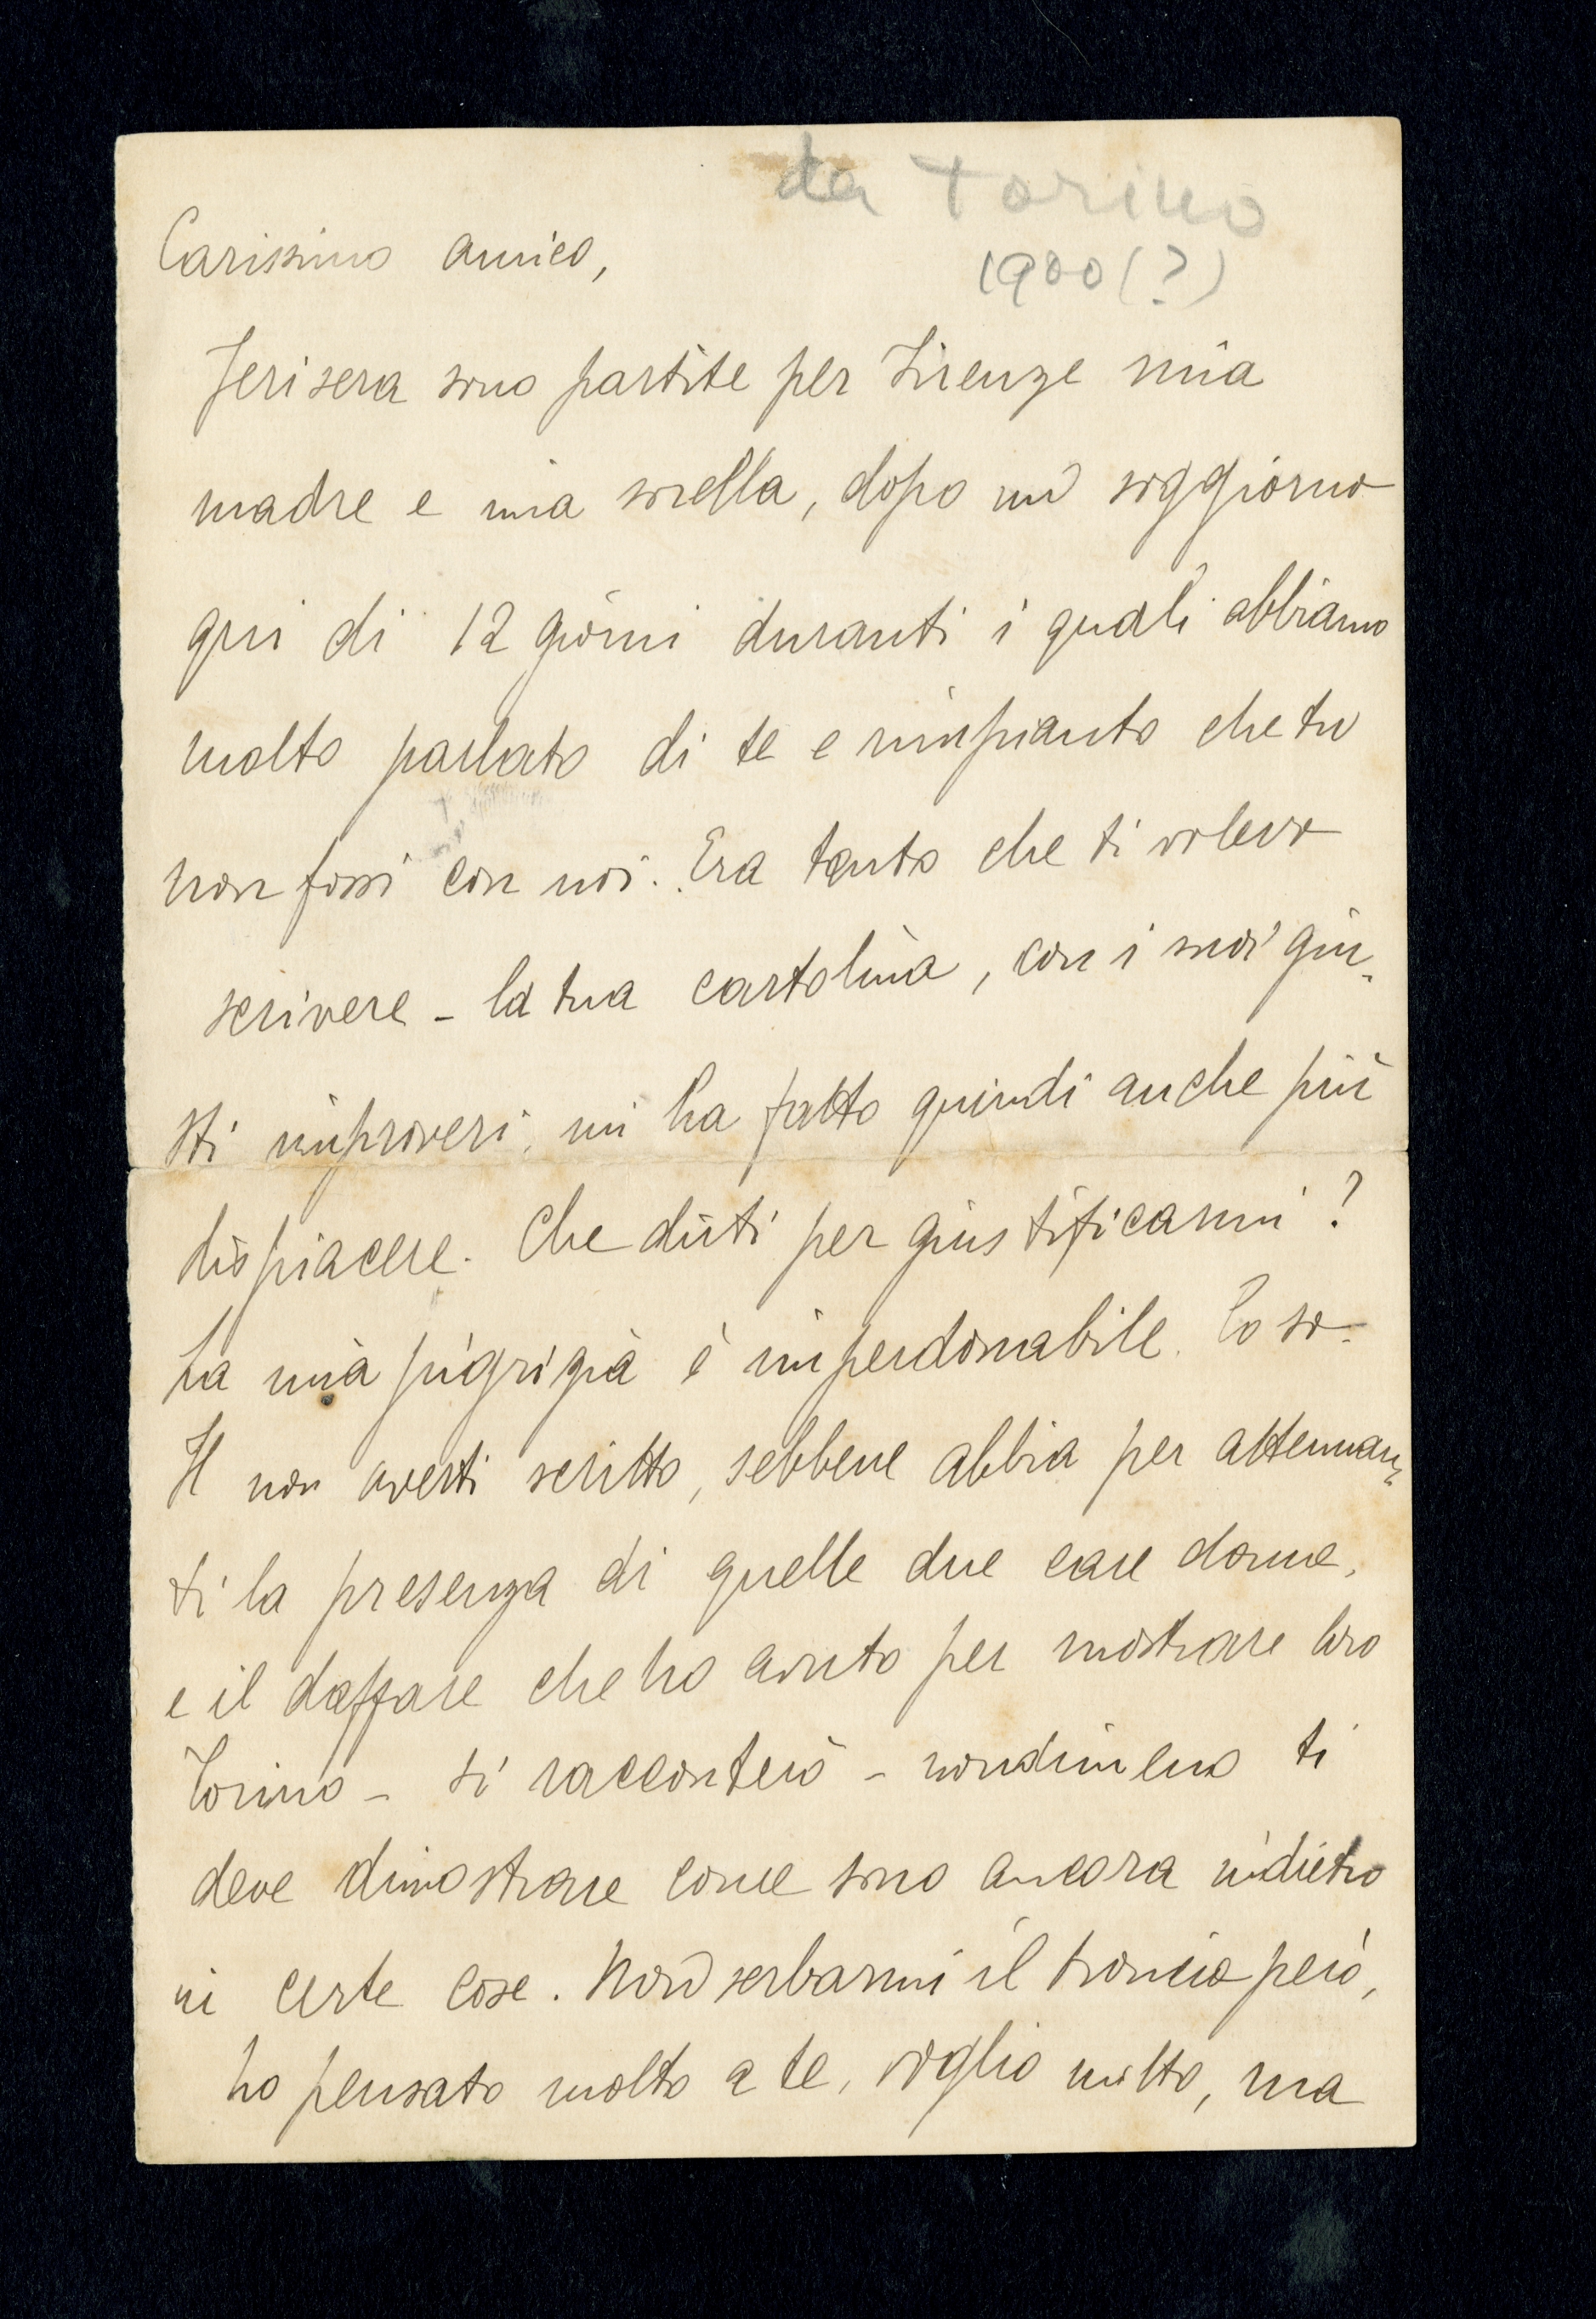 da Torino
1900(?)
Carissimo amico,
Jerisera sono partite per Firenze mia
madre e mia sorella, dopo un soggiorno
qui di 12 giorni duranti i quali abbiamo
molto parlato di te e rimpianto che tu
non fossi con noi. Era tanto che ti volevo
scrivere - la tua cartolina, con i suoi giu-
sti rimproveri, mi ha fatto quindi anche più
dispiacere. Che dirti per giustificarmi?
La mia pigrizia è imperdonabile. Lo so.
Il non averti scritto, sebbene abbia per attenuan-
ti la presenza di quelle due care donne,
e il daffare che ho avuto per mostrare loro
Torino - ti racconterò - nondimeno ti
deve dimostrare come sono ancora indietro
in certe cose. Non serbarmi il broncio però,
ho pensato molto a te, voglio molto, ma